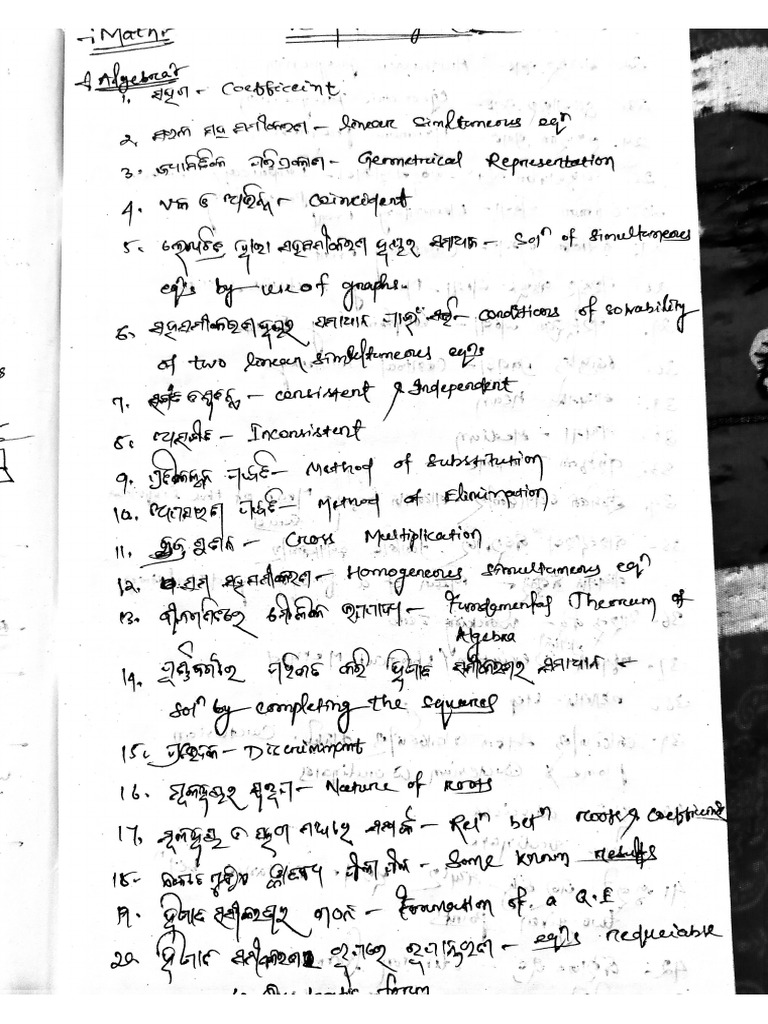 Maths
Algebra
1. ସହଗ - Coefficeint.
2. ସହ ସମୀକରଣ - linear simltuneous eqn
3. ଜ୍ୟାମିତିକ ପରିପ୍ରକାଶ - Geometrical Representation
4. ଏକ ଓ ଅଭିନ୍ନ - Coincident
5. ଲେଖଚିତ୍ର ଦ୍ୱାରା ସହସମୀକରଣ ଦ୍ୱୟର ସମାଧାନ - Soln of simultaneous
eqns by use of graphs.
6. ସହସମୀକରଣଦ୍ୱୟର ସମାଧାନ ପାଇଁ ସର୍ତ୍ତ - conditions of solvability
of two linear simultuneous eqns
7. - consistent & Independent
8. ଅସଙ୍ଗତ - Inconsistent
9. ପ୍ରତିକଳ୍ପନ ପଦ୍ଧତି - Method of Substitution
10. ଅପସାରଣ ପଦ୍ଧତି - Method of Elimination
11. ବଜ୍ର ଗୁଣନ - Cross Multiplication
12. ସହସମୀକରଣ - Homogeneous simultuneous eqn
13. ବୀଜଗଣିତରେ ମୌଳିକ ଉପପାଦ୍ୟ - Fundamental Theorum of
Algebra
14. ପୂର୍ଣ୍ଣବର୍ଗରେ ପରିଣତ କରି ଦ୍ୱିଘାତ ସମୀକରଣର ସମାଧାନ -
Soln by completing the squares
15. ପ୍ରଭେଦକ - Discriminant
16. ମୂଳଦ୍ୱୟର ସ୍ୱରୂପ - Nature of roots
17. ମୂଳଦ୍ୱୟ ଓ ସହଗ ମଧ୍ୟରେ ସମ୍ପର୍କ - Reln betn roots & coefficient
18. - Some known results
19. ଦ୍ୱିଘାତ ସମୀକରଣର ଗଠନ - Formation of a Q.E
20. ଦ୍ୱିଘାତ ସମୀକରଣର ରୂପରେ ରୂପାନ୍ତରଣ - eqns reduciable
form